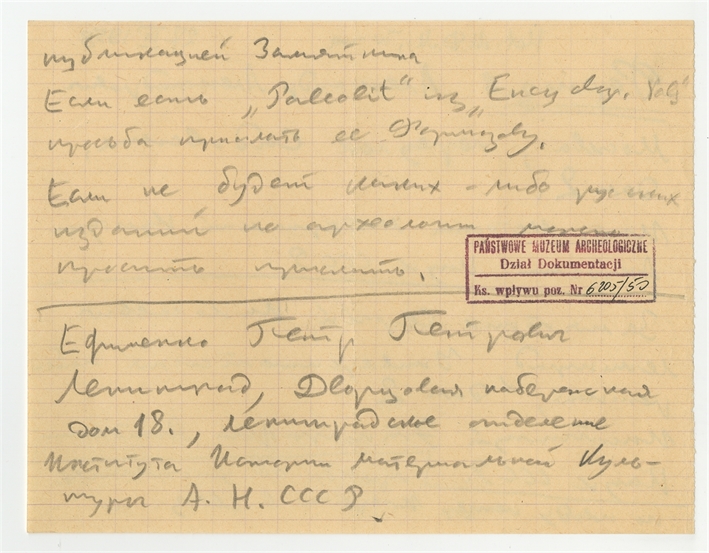 публикацией Замятнина
Если есть „Paleolit“ из „Encyclop. Pols“
просьба прислать ее Формозову.
Если не будет каких-либо русских
изданий по археологии можно
просить прислать.
PAŃSTWOWE MUZEUM ARCHEOLOGICZNE
Dział Dokumentacji
Ks. wpływu poz. Nr 6205/50
Ефименко Петр Петрович
Ленинград, Дворцовая набережная
дом 18., Ленинградское отделение
Института Истории материальной Куль-
туры А. Н. СССР